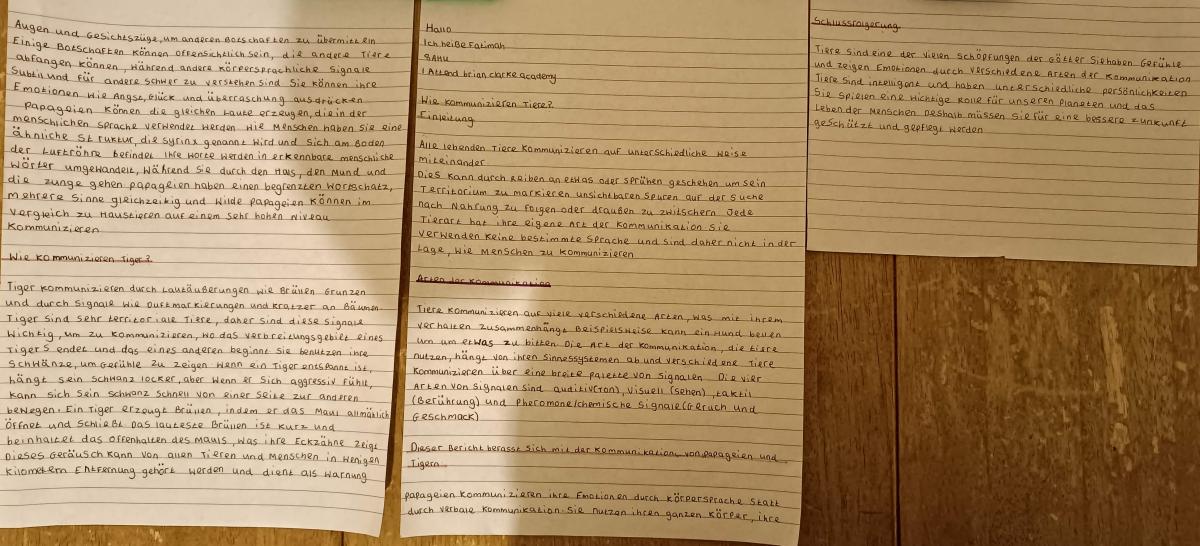 Hallo
Ich heiße Fatimah
8AHU
I Attend brian clarke academy
Wie kommunizieren Tiere?
Einleitung
Alle lebenden Tiere kommunizieren auf unterschiedliche weise
miteinander
Dies kann durch Reiben an etwas oder sprühen geschehen um sein
Territorium zu markieren unsichtbaren Spuren auf der suche
nach Nahrung zu folgen oder draußen zu zwitschern Jede
Tierart hat ihre eigene Art der Kommunikation Sie
verwenden keine bestimmte Sprache und sind daher nicht in der
Lage, wie Menschen zu kommunizieren
Arten der Kommunikation
Tiere kommunizieren auf viele verschiedene Arten, was mit ihrem
verhalten zusammenhängt Beispielsweise kann ein Hund bellen
um um etwas zu bitten Die Art der kommunikation, die tiere
nutzen, hängt von ihren Sinnessystemen ab und verschiedene Tiere
kommunizieren über eine breite palette von Signalen Die vier
Arten von Signalen sind auditiv(Ton), visuell (sehen), taktil
(Berührung) und Pheromone/chemische Signale (Geruch und
Geschmack)
Dieser Bericht befasst sich mit der Kommunikation von papageien und
Tigern.
papageien Kommunizieren ihre Emotionen durch Körpersprache Statt
durch verbale Kommunikation. Sie nutzen ihren ganzen Körper, ihre
Augen und Gesichtszüge, um anderen Botschaften zu übermitteln
Einige Botschaften können offensichtlich sein, die andere Tiere
abfangen können, während andere körpersprachliche Signale
Subtil und für andere schwer zu verstehen sind Sie können ihre
Emotionen wie Angst, Glück und überraschung ausdrücken
papageien können die gleichen Laute erzeugen, die in der
menschlichen sprache verwendet werden wie Menschen haben Sie eine
ähnliche Struktur, die Syrinx genannt wird und sich am Boden
der Luftröhre befindet Ihre worte werden in erkennbare menschliche
Wörter umgewandelt, während Sie durch den Hals, den Mund und
die zunge gehen papageien haben einen begrenzten Wortschatz,
mehrere Sinne gleichzeitig und Wilde papageien können im
vergleich zu Haustieren auf einem sehr hohen niveau
kommunizieren
Wie kommunizieren Tiger?
Tiger kommunizieren durch Lautäußerungen wie Brüllen Grunzen
und durch Signale wie Duftmarkierungen und kratzer an Bäumen.
Tiger sind sehr territoriale Tiere, daher sind diese Signale
Wichtig, um zu kommunizieren, wo das verbreitungsgebiet eines
Tigers endet und das eines anderen beginnt Sie benutzen ihre
Schwänze, um Gefühle zu zeigen wenn ein Tiger entspannt ist,
hängt sein Schwanz locker, aber wenn er Sich aggressiv fühlt,
kann sich sein Schwanz schnell von einer Seite zur anderen
bewegen. Ein Tiger erzeugt Brüllen, indem er das Maul allmählich
öffnet und schließt Das lauteste Brüllen ist kurz und
beinhaltet das offenhalten des Mauls, was ihre Eckzähne zeigt
Dieses Geräusch kann von allen Tieren und Menschen in wenigen
kilometern Entfernung gehört werden und dient als warnung
Schlussfolgerung
Tiere sind eine der vielen schöpfungen der Götter Sie haben Gefühle
und zeigen Emotionen durch verschiedene Arten der Kommunikation
Tiere sind intelligent und haben unterschiedliche persönlichkeiten
Sie spielen eine wichtige Rolle für unseren planeten und das
Leben der Menschen Deshalb müssen Sie für eine bessere zukunft
geschützt und gepflegt werden